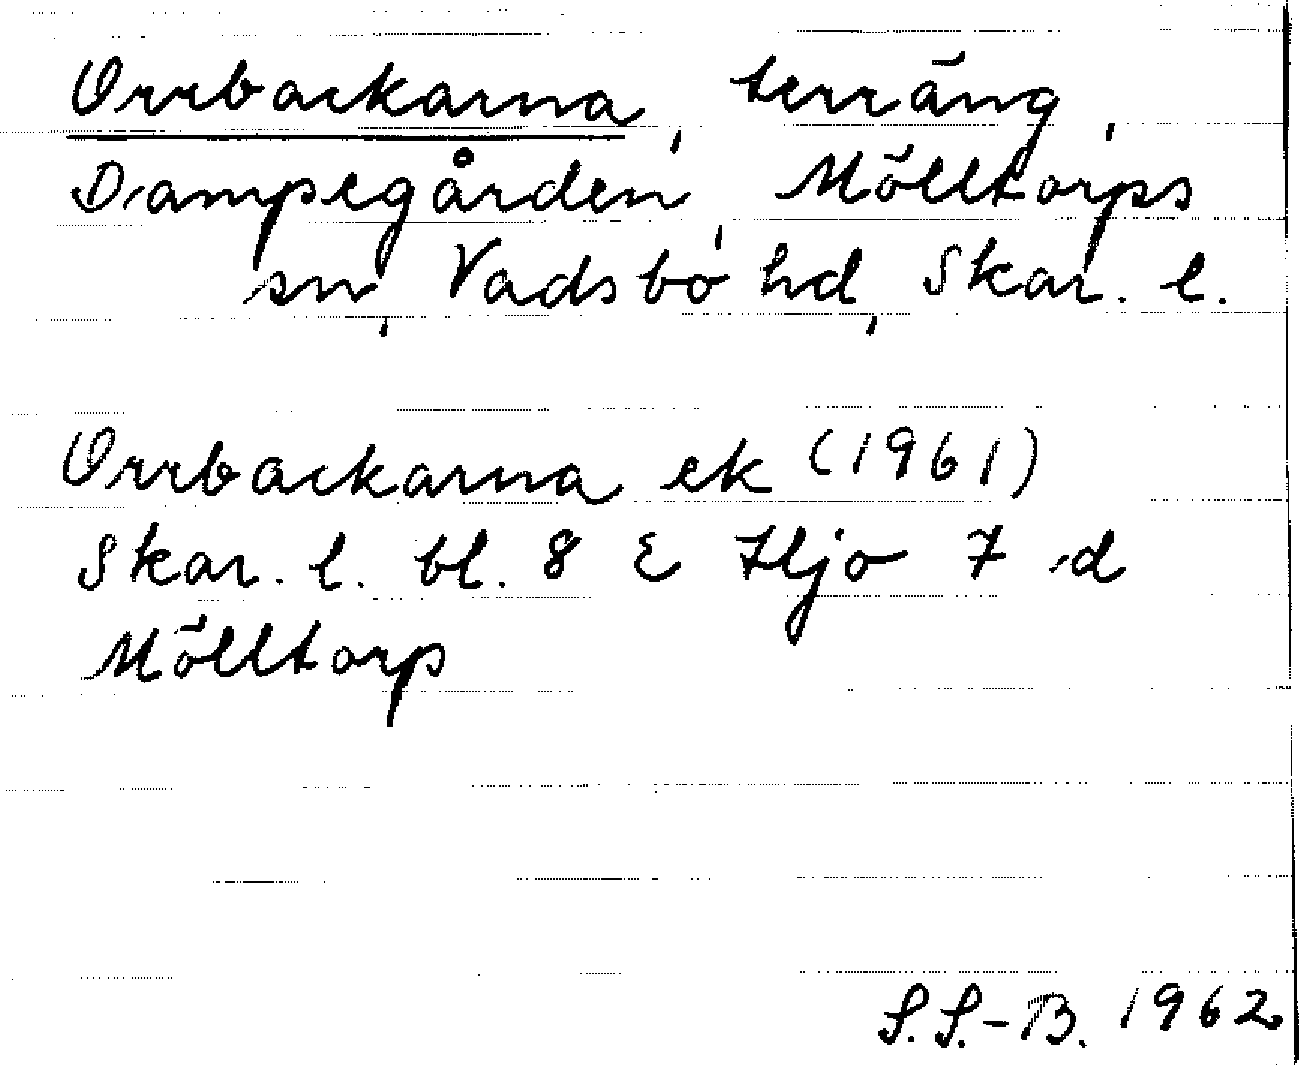 Orrbackarna, terräng,
Dampegården, Mölltorps
sn, Vadsbo hd, Skar. l.
Orrbackarna ek (1961)
Skar. l. bl. 8 E Hjo 7 d
Mölltorp
S.S.-B. 1962